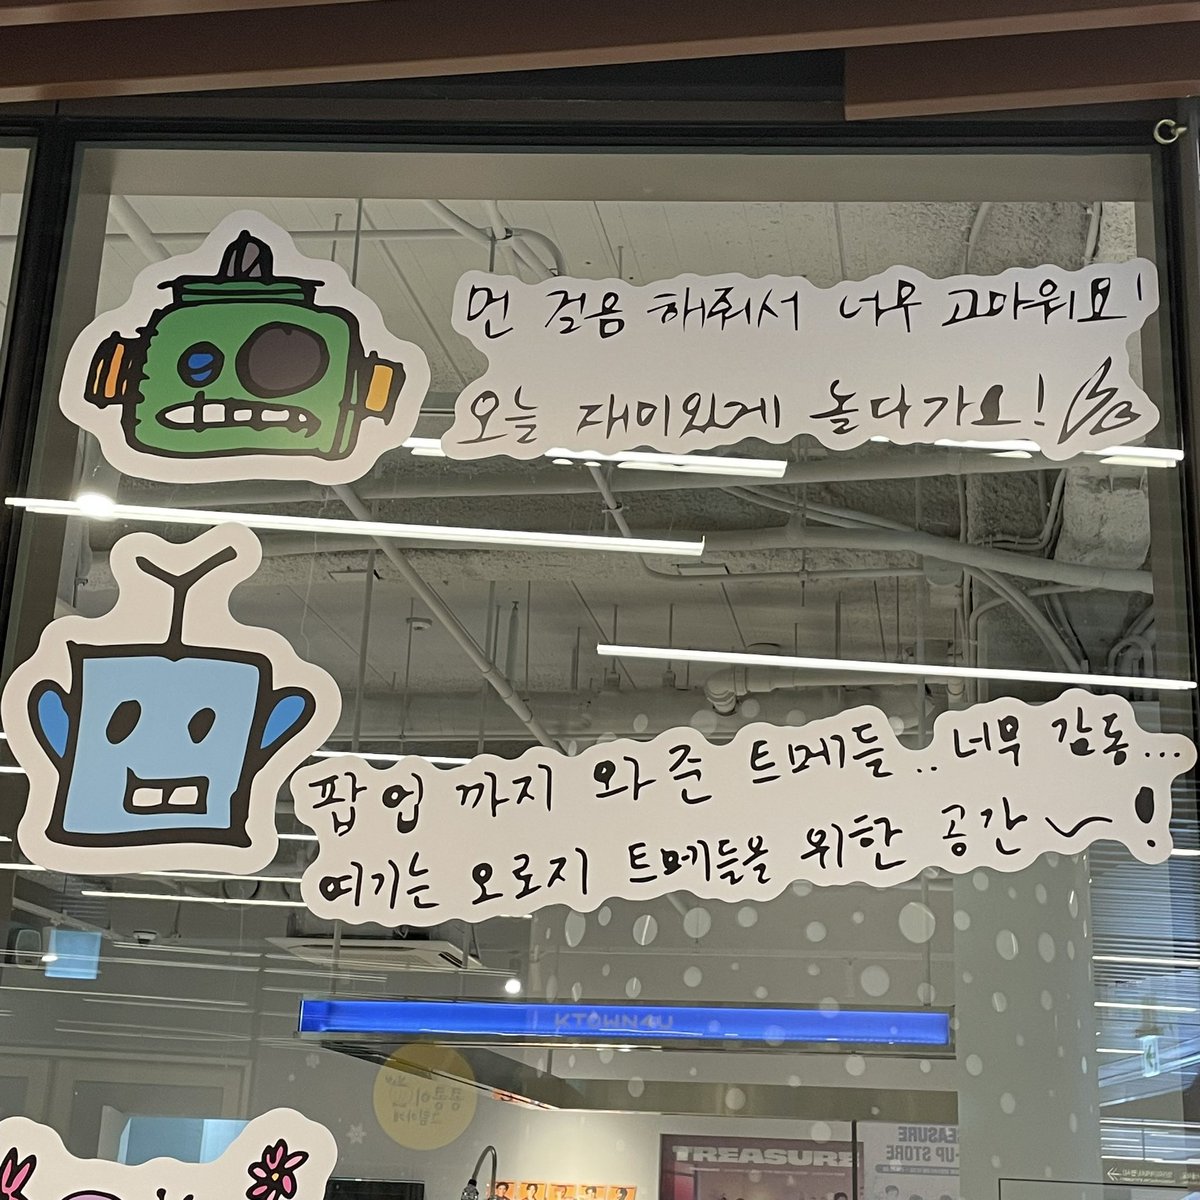 먼 걸음 해줘서 너무 고마워요!
오늘 재미있게 놀다가요!
팝업 까지 와준 트메들.. 너무 감동...
여기는 오로지 트메들을 위한 공간~!
KTOWN4U
TREASURE
TREASURE
-UP STORE